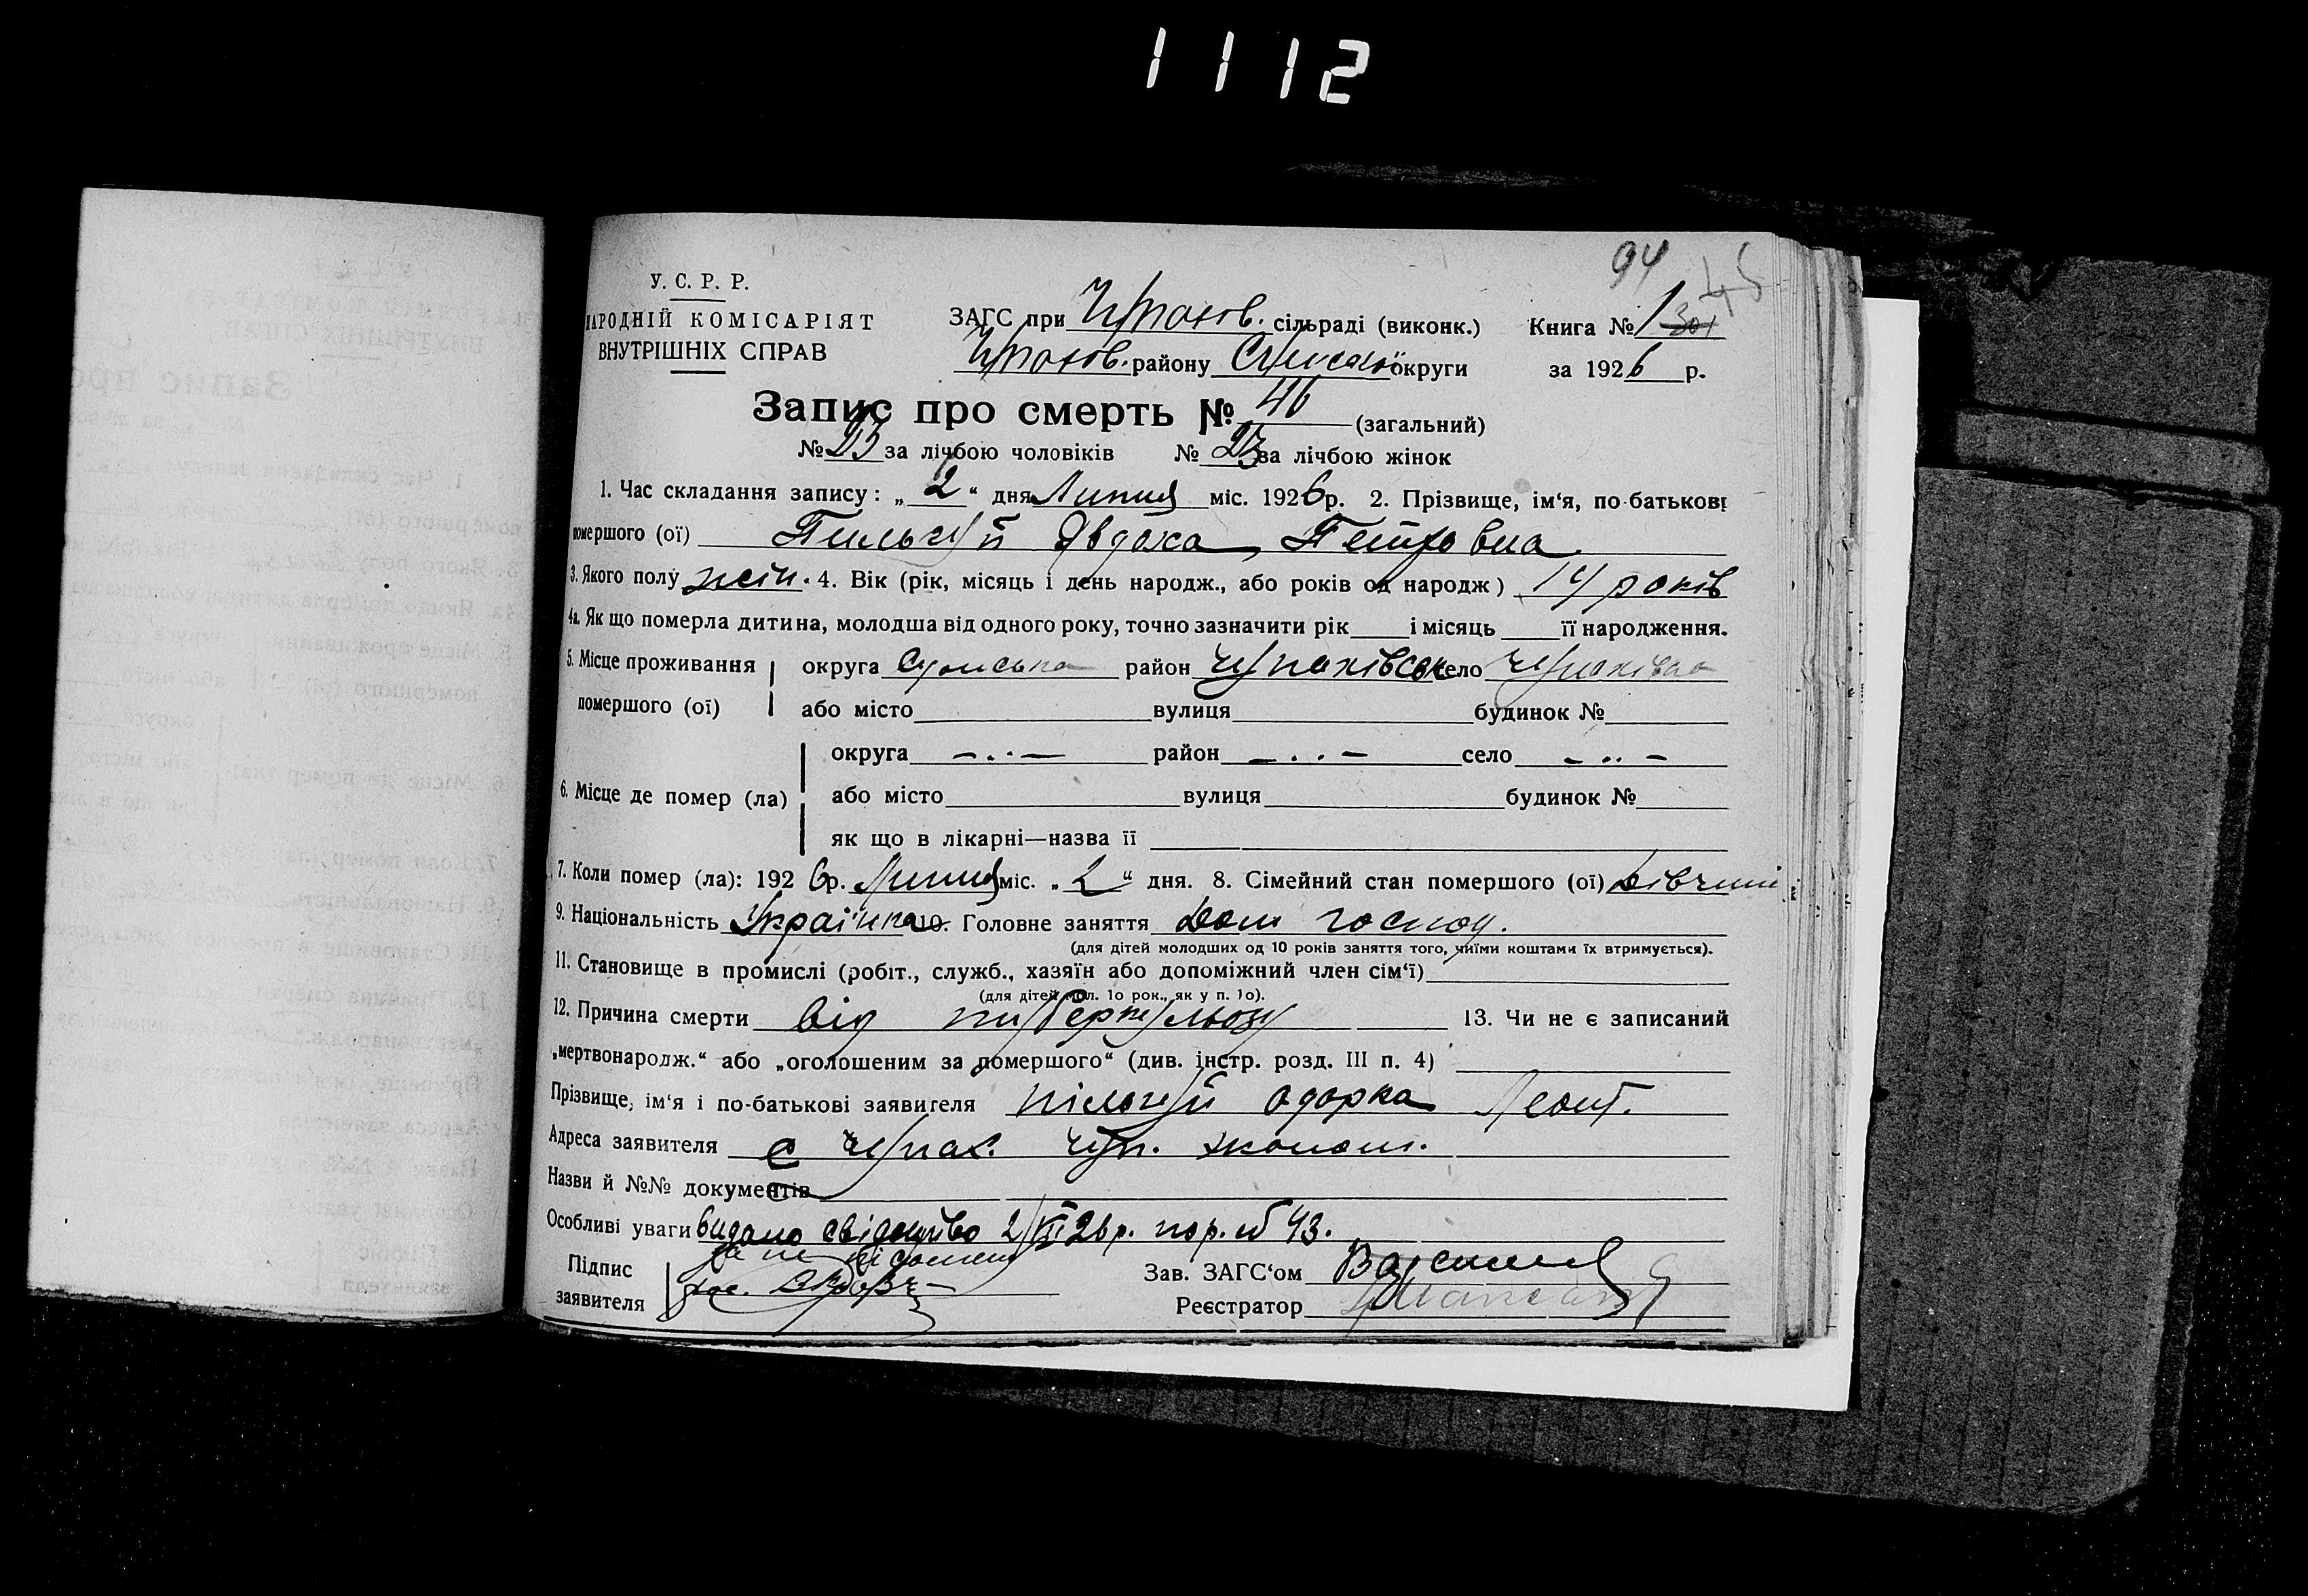 1112
94
У. С. Р. Р.
НАРОДНІЙ КОМІСАРІЯТ
ВНУТРІШНІХ СПРАВ
ЗАГС при Чупахов. сільраді (виконк.) Книга № 1
Чупахов. району Сумської округи за 1926 р.
Запис про смерть № 46 (загальний)
№ 23 за лічбою чоловіків № 23 за лічбою жінок
1. Час складання запису: „2“ дня Липня міс. 1926 р. 2. Прізвище, ім‘я, по-батькові
помершого (ої) Пильгуй Явдоха Петровна
3. Якого полу жін. 4. Вік (рік, місяць і день народж., або років од народж) 14 років
4а. Як що померла дитина, молодша від одного року, точно зазначити рік і місяць її народження.
5. Місце проживання округа Сумська район Чупахівськ село Чупахівка
помершого (ої) або місто вулиця будинок №
округа —..— район —..— село —..—
6. Місце де помер (ла) або місто вулиця будинок №
як що в лікарні—назва її
7. Коли помер (ла): 1926 р. Липня міс. „2“ дня. 8. Сімейний стан помершого (ої) Дівчина
9. Національність Українка 10. Головне заняття Дом господ.
(для дітей молодших од 10 років заняття того, чиїми коштами їх втримується).
11. Становище в промислі (робіт., служб., хазяїн або допоміжний член сім‘ї)
(для дітей мол. 10 рок., як у п. 10).
12. Причина смерти від туберкульозу 13. Чи не є записаний
„мертвонародж.“ або „оголошеним за помершого“ (див. інстр. розд. III п. 4)
Прізвище, ім‘я і по-батькові заявителя Пільгуй Одарка Леонт.
Адреса заявителя с Чупах. Чуп. економ.
Назви й №№ документів
Особливі уваги видано свідоцтво 2/VII 26 р. пор. № 43.
Підпис за не
заявителя
Зав. ЗАГС‘ом
Реєстратор